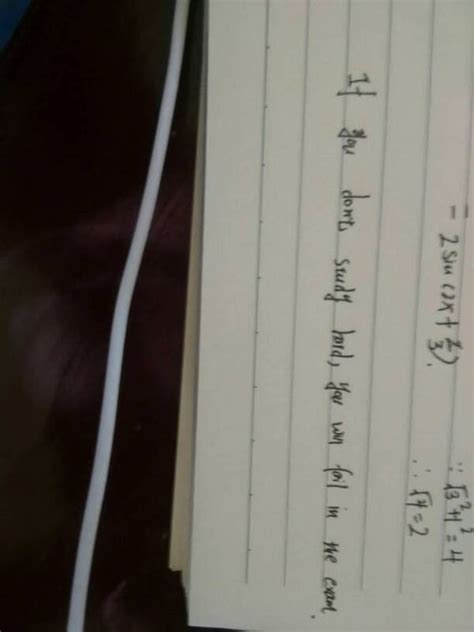 = 2sin(2x+π/3). ∵ √3²+1²=4
∴ √4=2
If you don't study hard, you will fail in the exam.